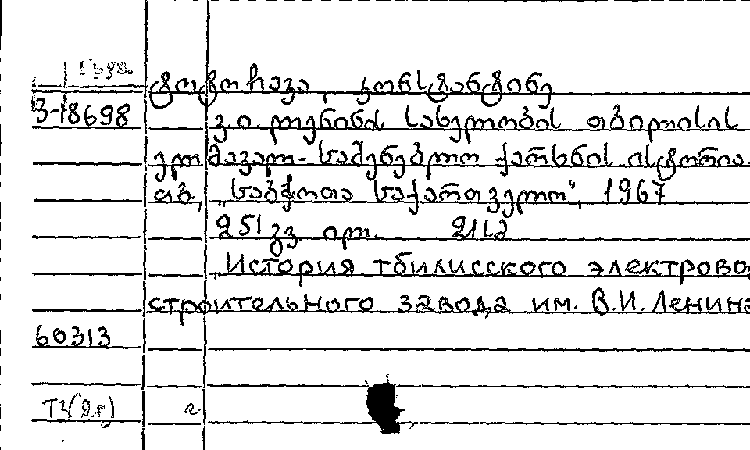 ტოტოჩავა, კონსტანტინე
3-18698
ვ.ი. ლენინის სახელობის თბილისის
ელმავალ-სამშენებლო ქარხნის ისტორია.
თბ., „საბჭოთა საქართველო", 1967
251 გვ. ილ.
История тбилисского электрово
строительного завода им. В.И. Ленина
60313